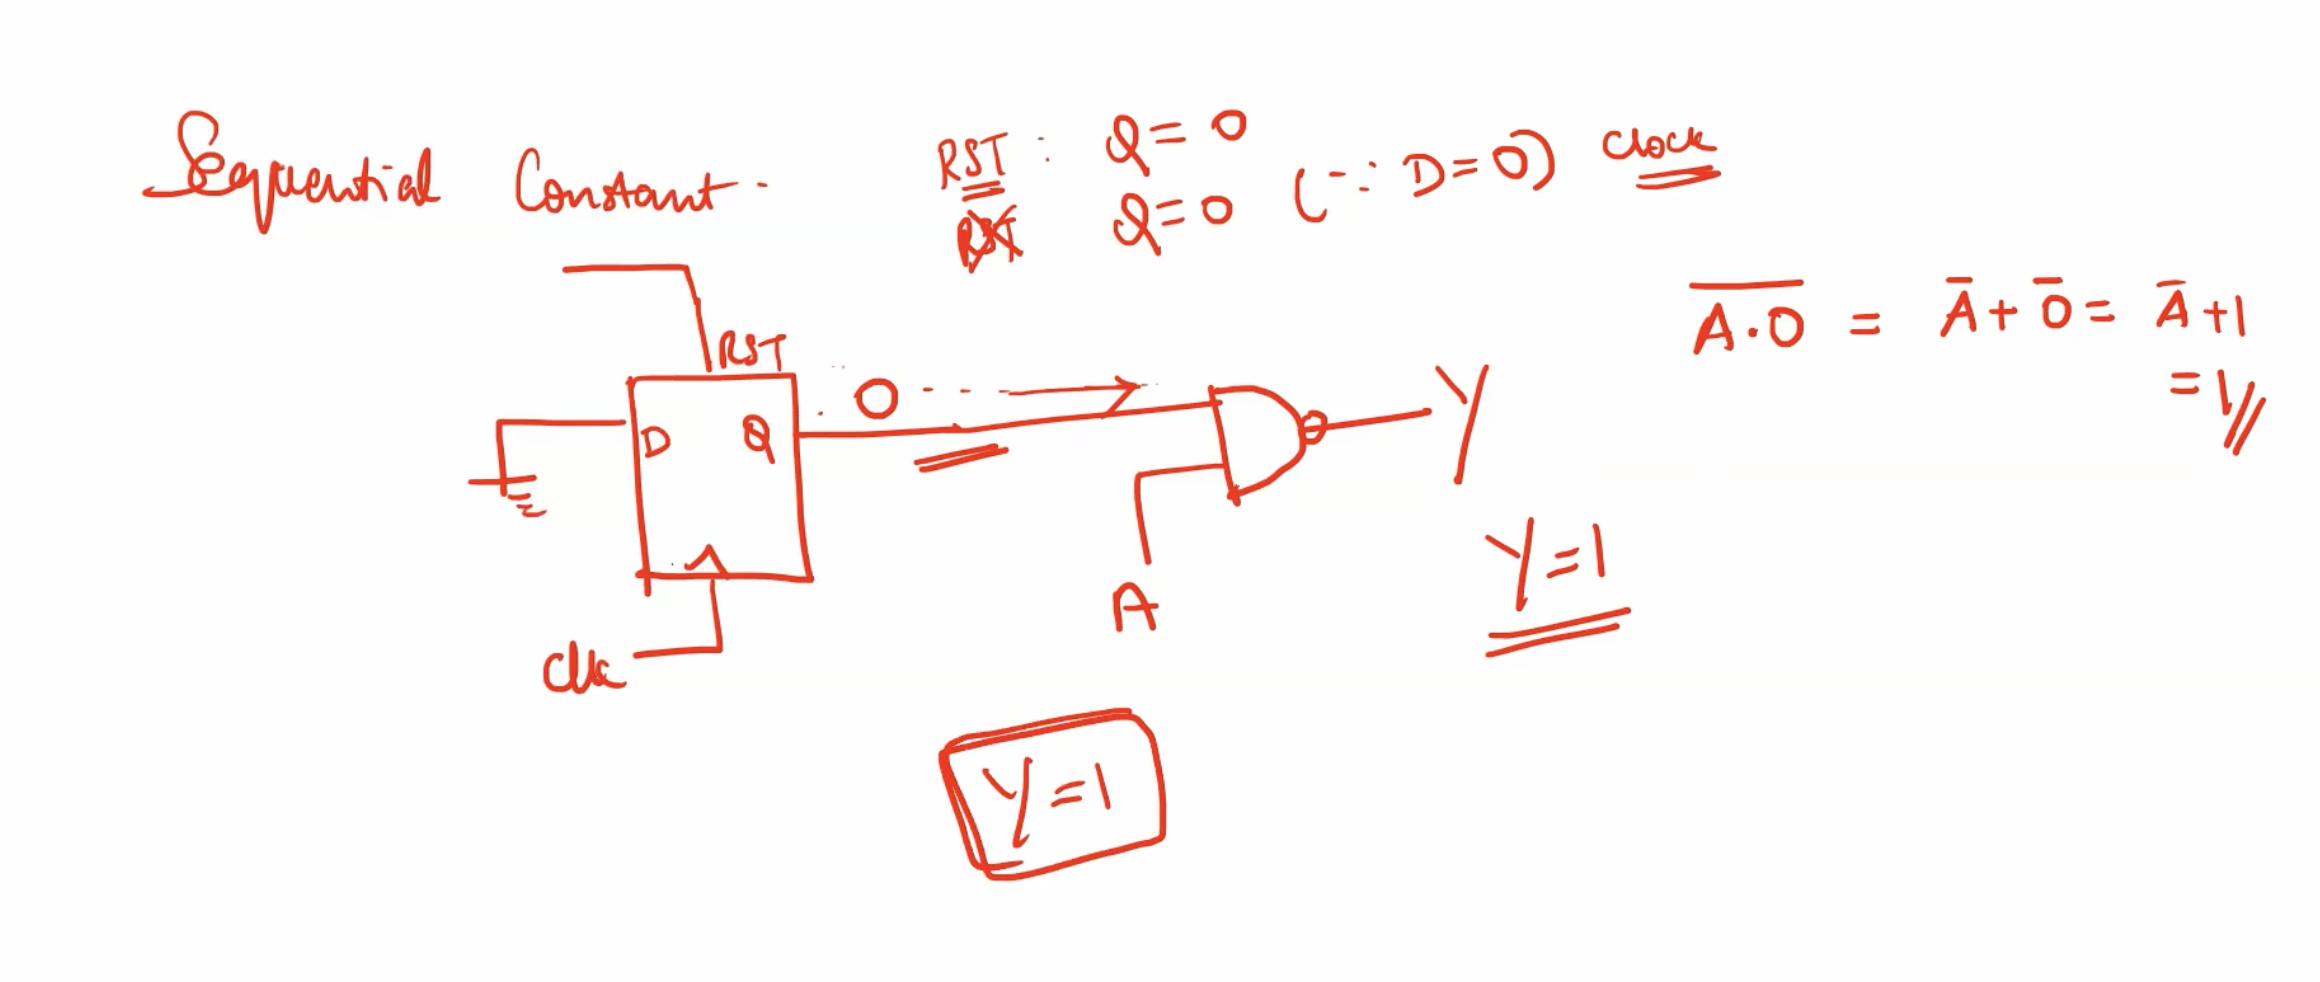 Sequential Constant -
RST : Q = 0
RST Q = 0 (∵ D = 0) Clock
A̅.̅0̅ = A̅ + 0̅ = A̅ + 1
= 1
RST
0
D Q
Y
Clk
A
Y = 1
Y = 1